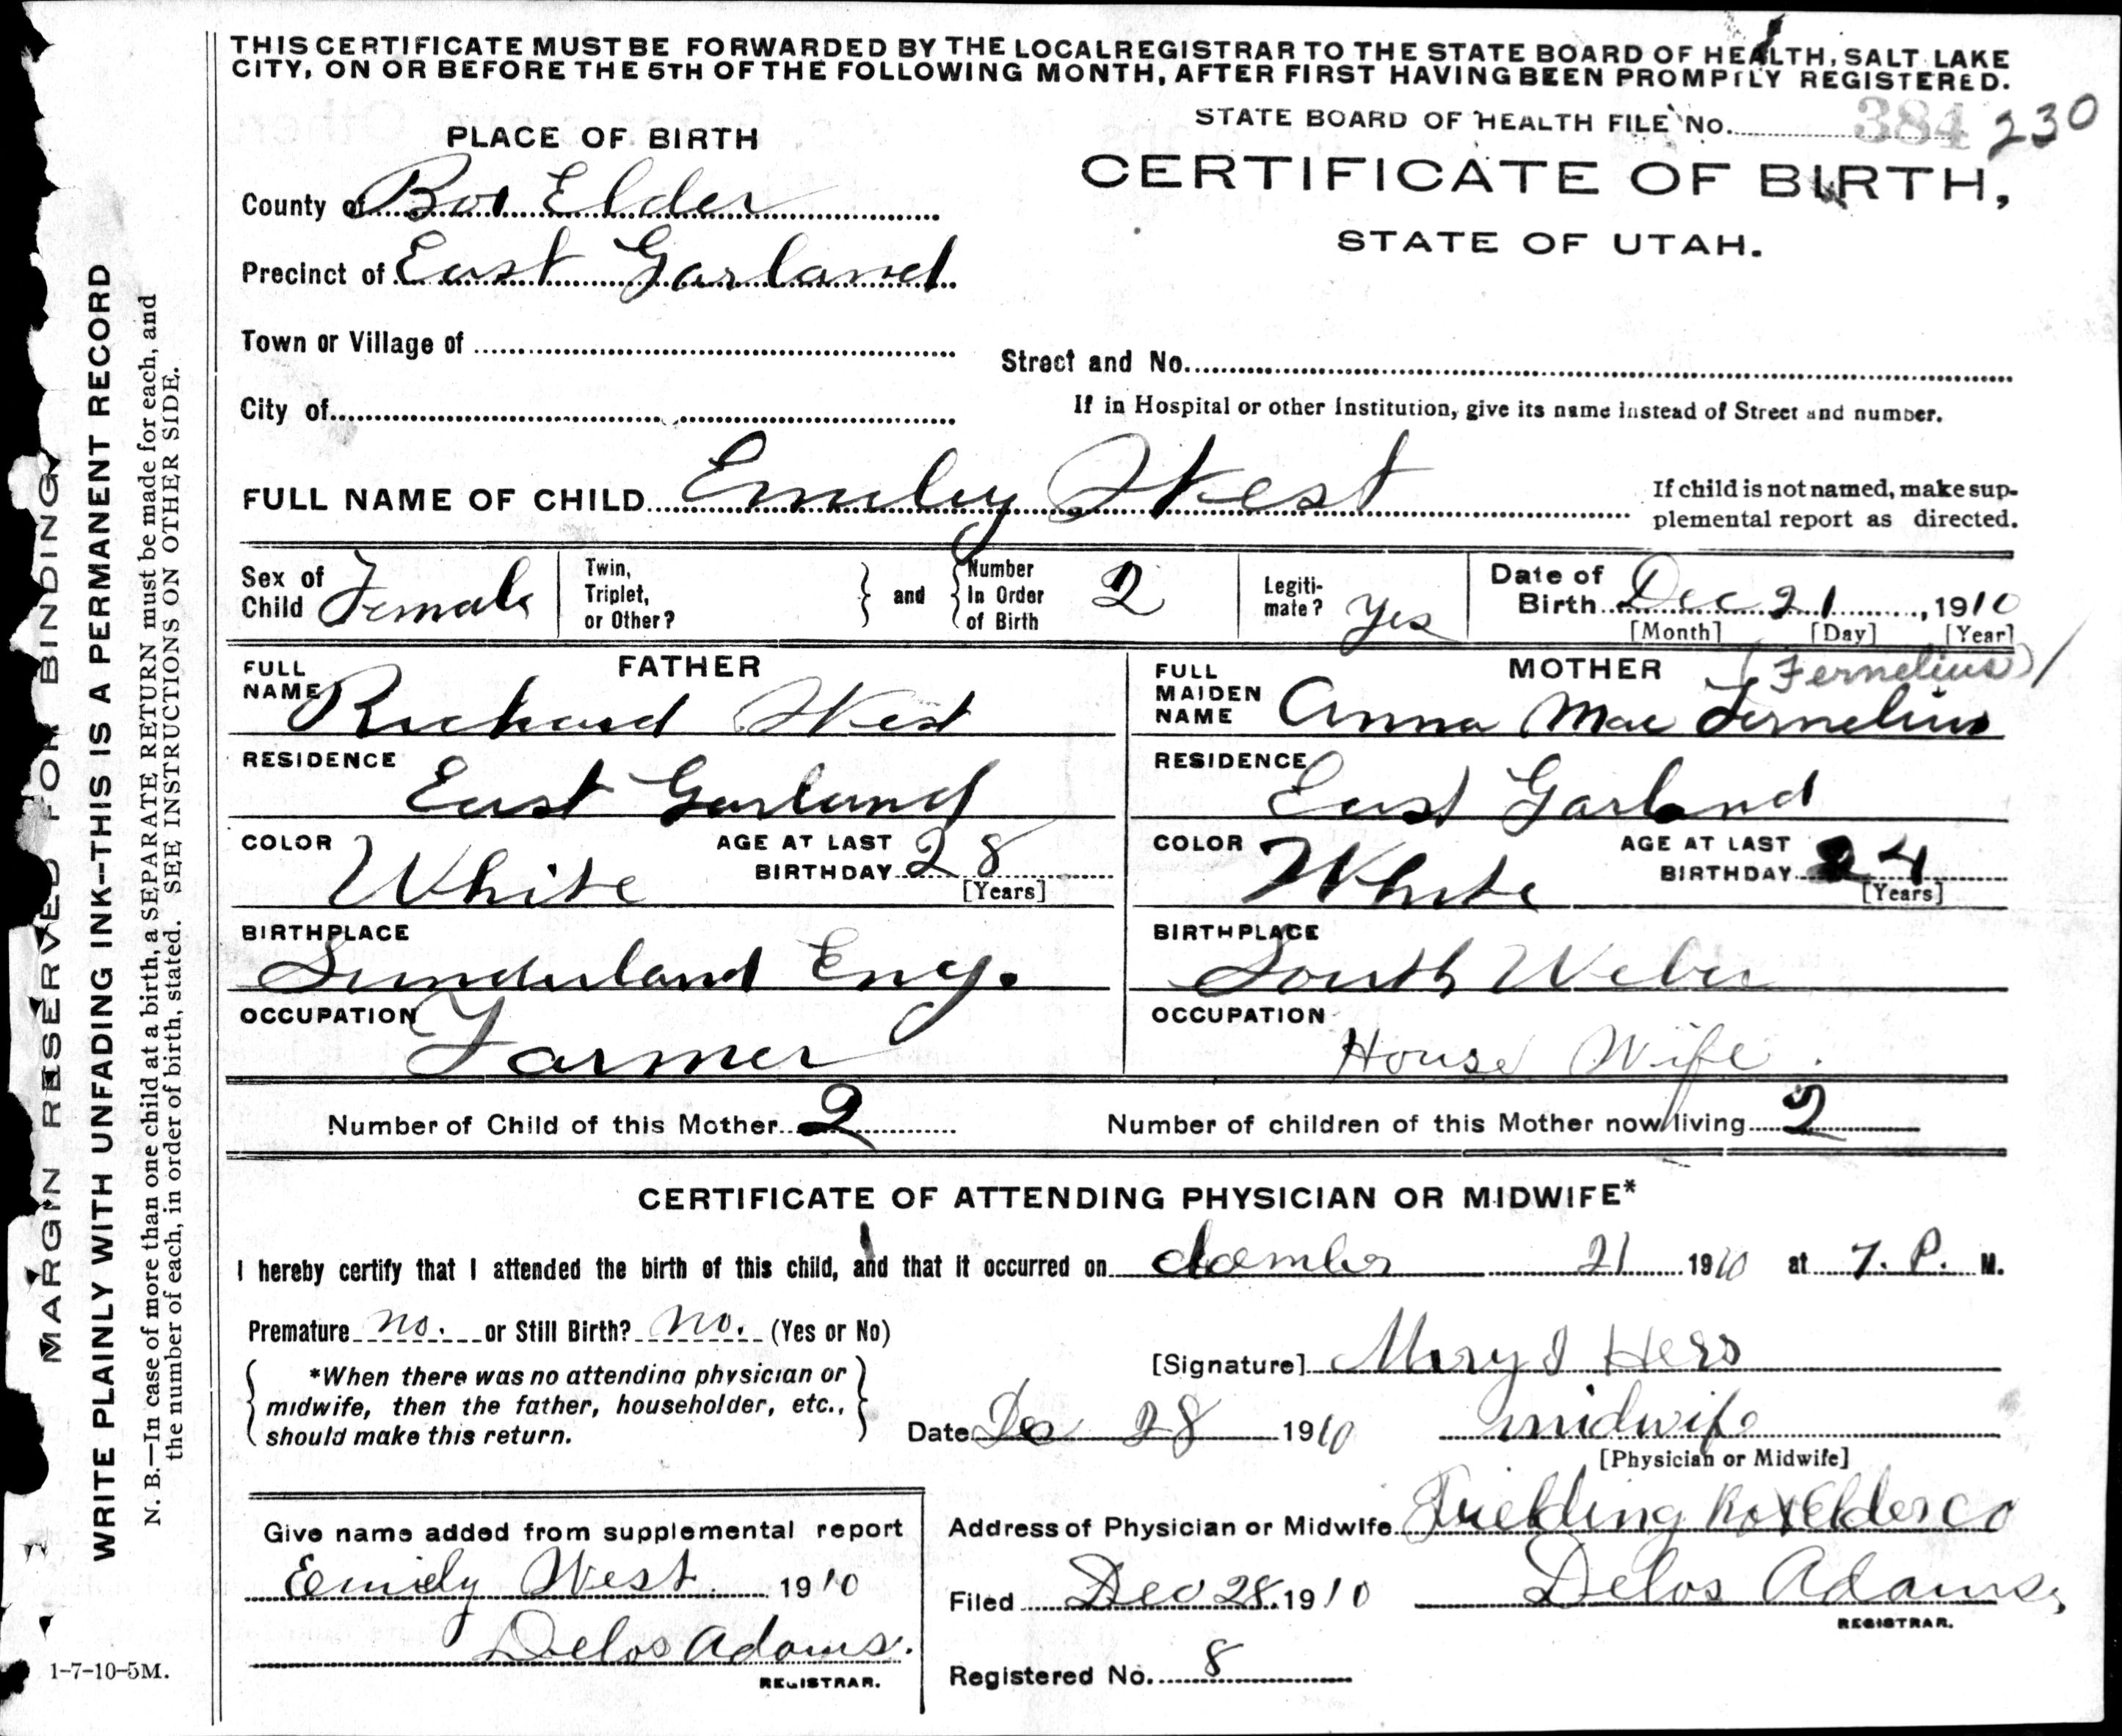 THIS CERTIFICATE MUST BE FORWARDED BY THE LOCAL REGISTRAR TO THE STATE BOARD OF HEALTH, SALT LAKE
CITY, ON OR BEFORE THE 5TH OF THE FOLLOWING MONTH, AFTER FIRST HAVING BEEN PROMPTLY REGISTERED.
STATE BOARD OF HEALTH FILE No. 384 230
PLACE OF BIRTH
CERTIFICATE OF BIRTH,
STATE OF UTAH.
County of Box Elder
Precinct of East Garland
Town or Village of
Street and No.
City of
If in Hospital or other Institution, give its name instead of Street and number.
FULL NAME OF CHILD Emily West
If child is not named, make sup-
plemental report as directed.
Sex of Child Female
Twin, Triplet, or Other?
and
Number In Order of Birth 2
Legiti-mate? Yes
Date of Birth Dec 21, 1910
[Month] [Day] [Year]
FATHER
FULL NAME Richard West
RESIDENCE
East Garland
COLOR White
AGE AT LAST BIRTHDAY 28
[Years]
BIRTHPLACE
Sunderland Eng.
OCCUPATION
Farmer
MOTHER (Fernelius)
FULL MAIDEN NAME Anna Mae Fernelius
RESIDENCE
East Garland
COLOR White
AGE AT LAST BIRTHDAY 24
[Years]
BIRTHPLACE
South Weber
OCCUPATION
House Wife
Number of Child of this Mother 2
Number of children of this Mother now living 2
CERTIFICATE OF ATTENDING PHYSICIAN OR MIDWIFE*
I hereby certify that I attended the birth of this child, and that it occurred on 21 1910 at 7. P. M.
Premature no. or Still Birth? no. (Yes or No)
*When there was no attending physician or
midwife, then the father, householder, etc.,
should make this return.
[Signature] Mary I
Date Dec 28 1910
midwife
[Physician or Midwife]
Address of Physician or Midwife Fielding Box Elder Co
Filed Dec 28. 1910 Delos Adams,
REGISTRAR.
Registered No. 8
Give name added from supplemental report
Emily West 1910
Delos Adams.
REGISTRAR.
1-7-10-5M.
MARGIN RESERVED FOR BINDING
WRITE PLAINLY WITH UNFADING INK--THIS IS A PERMANENT RECORD
N. B.—In case of more than one child at a birth, a SEPARATE RETURN must be made for each, and
the number of each, in order of birth, stated. SEE INSTRUCTIONS ON OTHER SIDE.